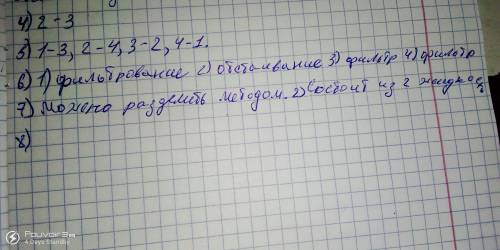 4) 2-3
5) 1-3, 2-4, 3-2, 4-1.
6) 1) фильтрование 2) отстаивание 3) фильтр 4) фильтр
7) Можно разделить методом. 2) Состоит из 2 жидкос
8)
Pouvoir 3
4 Days Standby